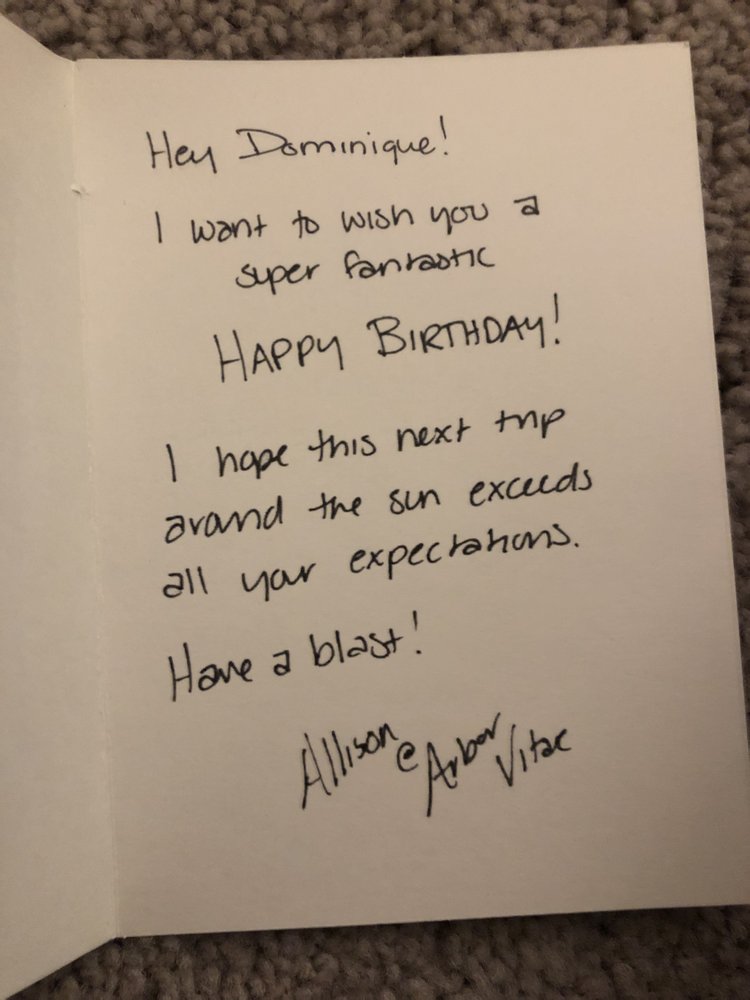 Hey Dominique!
I want to wish you a
super fantastic
HAPPY BIRTHDAY!
I hope this next trip
around the sun exceeds
all your expectations.
Have a blast!
Allison @ Arbor Vitae